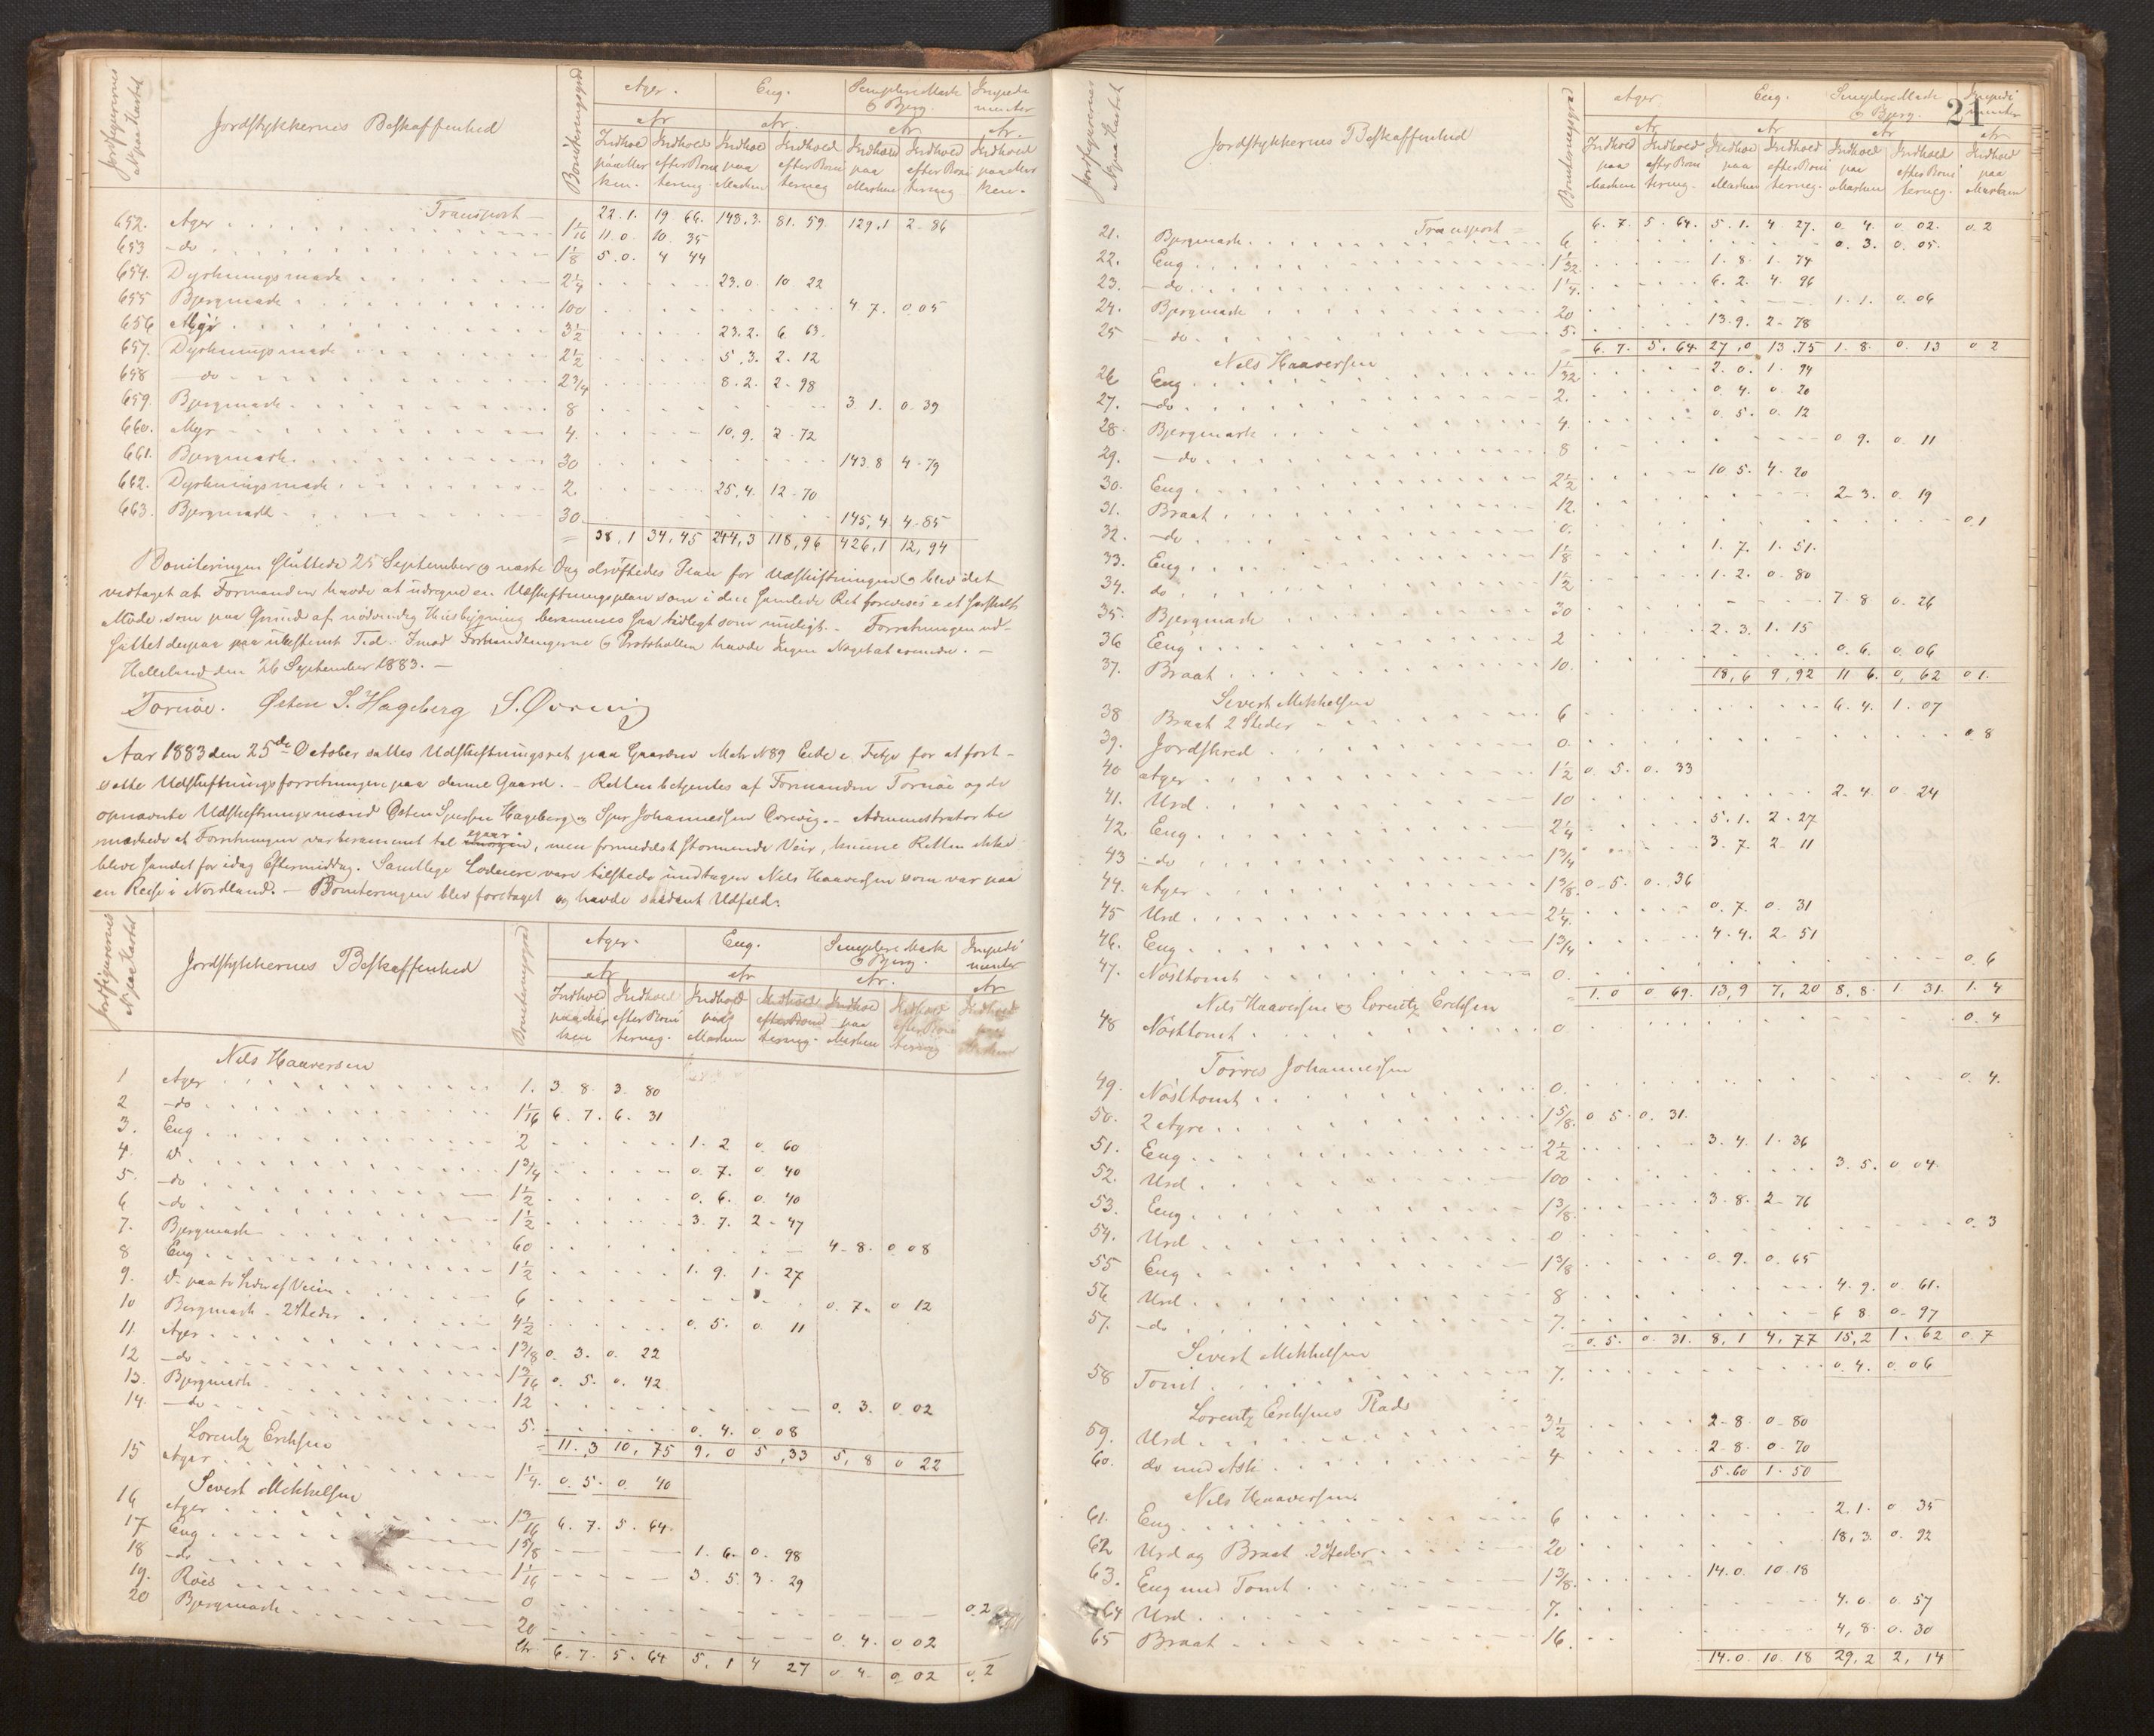 Jordfigurernes No paa Kartet | Jordstykkernes Beskaffenhed | Boniteringsgrad | Ager. | Eng. | Simplere Mark & Bjerg. | Impedimenter
Ar | Ar. | Ar | Ar.
Indhold paa Marken. | Indhold efter Bonitering. | Indhold paa Marken | Indhold efter Bonitering | Indhold paa Marken | Indhold efter Bonitering | Indhold paa Marken.
Transport 22.1. 19 66. 143.3. 81.59. 129.1 2-86
652. Ager 1 1/16 11.0. 10. 35
653 -do 1 1/8 5.0. 4 44
654. Dyrkningsmark 2 1/4 23.0. 10 22
655 Bjergmark 100 4 7. 0 05
656 Myr 3 1/2 23.2. 6 63.
657. Dyrkningsmark 2 1/2 5.3. 2.12
658 -do 2 3/4 8.2. 2-98
659. Bjergmark 8 3.1. 0.39
660. Myr 4. 10.9. 2-72
661. Bjergmark. 30 143 8 4-79
662. Dyrkningsmark 2. 25.4. 12-70
663. Bjergmark 30. 145,4 4-85
= 38,1 34,45 244,3 118,96 426,1 12,94
Boniteringen sluttede 25 September & næste Dag drøftedes Plan for Udskiftningen & blev det
vedtaget at Formanden havde at udregne en Udskiftningsplan som i den samlede Ret forevises i et særskilt
Møde, som paa Grund af nødvendig Husbygning berammes saa tidligt som muligt. - Forretningen ud-
sattes derpaa paa ubestemt Tid. Imod Forhandlingerne & Protokollen havde Ingen Noget at erindre. -
Helleland den 26 September 1883. -
Tornøe. Østen S. Hageberg S. Ørevig
Aar 1883 den 25de October sattes Udskiftningsret paa Gaarden Matr. N 89 Eide i Fitje for at fort-
sætte Udskiftningsforretningen paa denne Gaard. - Retten betjentes af Formanden Tornøe og de
opnævnte Udskiftningsmænd Østen Sjursen Hageberg & Sjur Johannessen Ørevig. - Administrator be
mærkede at Forretningen var berammet til igaar, men formedelst stormende Veir, kunne Retten ikke
blive samlet før idag Eftermiddag. Samtlige Lodeiere vare tilstede undtagen Nils Haaversen som var paa
en Reise i Nordland. - Boniteringen blev foretaget og havde saadant Udfald:
Jordfigurernes No paa Kartet | Jordstykkernes Beskaffenhed | Boniteringsgrad | Ager. | Eng. | Simplere Mark & Bjerg. | Impedimenter
Ar | Ar | Ar. | Ar
Indhold paa Marken | Indhold efter Bonitering. | Indhold paa Marken | Indhold efter Bonitering. | Indhold paa Marken | Indhold efter Bonitering | Indhold paa Marken
Nils Haaversen
1 Ager 1. 3.8. 3.80
2 -do 1 1/16 6.7. 6.31
3. Eng 2 1.2 0.60
4. d. 1 3/4 0.7. 0.40
5. -do 1 1/2 0.6. 0.40
6 -do 1 1/2 3.7. 2-47
7. Bjergmark 60 4-8. 0 08
8 Eng 1 1/2 1.9. 1.27
9. d. paa to Sider af Veien 6 0.7. 0 12
10 Bergmark - 2 Steder 4 1/2 0.5. 0.11
11. Ager 1 3/8 0.3. 0.22
12 -do 1 3/16 0.5. 0.42
13. Bjergmark 12 0.3. 0.02
14. -do 5. 0.4. 0.08
= 11.3 10.75 9.0 5,33 5,8 0 22
Lorentz Eriksen
15 Ager 1 1/4. 0.5. 0.40
Sivert Mikkelsen
16 Ager 1 3/16 6.7. 5.64.
17 Eng 1 5/8 1.6. 0.98
18 -do 1 1/16 3.5. 3.29
19. Røis 0 0.2
20 Bjergmark 20 0.4. 0 02
Ltr. 6.7. 5.64 5.1 4 27 0.4. 0 02 0.2
21
Jordfigurernes No paa Kartet | Jordstykkernes Beskaffenhed | Boniteringsgrad | Ager | Eng. | Simplere Mark & Bjerg. | Impedimenter
Ar | Ar | Ar | Ar
Indhold paa Marken | Indhold efter Bonitering. | Indhold paa Marken | Indhold efter Bonitering. | Indhold paa Marken | Indhold efter Bonitering. | Indhold paa Marken
Transport = 6.7. 5.64. 5.1. 4 27. 0.4. 0.02. 0.2
21. Bjergmark 6 0.3. 0.05.
22. Eng 1 1/32. 1.8. 1.74
23. -do 1 1/4. 6.2. 4.96
24. Bjergmark 20 1.1. 0.06
25 -do 5. 13.9. 2-78
= 6.7. 5.64 27,0 13,75 1.8. 0.13 0 2
Nils Haaversen
26 Eng 1 1/32 2.0. 1.94
27. -do 2. 0 4. 0.20
28. Bjergmark 4. 0.5. 0.12
29. -do 8 0 9. 0.11
30. Eng 2 1/2 10 5. 4.20
31. Braat 12. 2-3. 0.19
32. -do 0. 0.1
33. Eng 1 1/8 1.7. 1.51.
34. do 1 1/2 1.2. 0.80
35. Bjergmark 30 7-8 0.26
36 Eng 2 2.3. 1.15
37. Braat 10. 0.6. 0.06
18,6 9,92 11 6. 0,62 0 1.
Sivert Mikkelsen
38 Braat 2 Steder 6 6.4. 1.07
39. Jordskred 0. 0 8
40 Ager 1 1/2 0.5. 0.33
41. Urd 10 2-4. 0.24
42. Eng 2 1/4 5.1. 2.27
43 -do 1 3/4 3.7. 2-11
44. Ager 1 3/8. 0-5. 0.36
45 Urd 2 1/4. 0.7. 0.31
46. Eng 1 3/4 4.4. 2-51
47. Nøsttomt 0. 0.6
= 1.0 0.69. 13,9 7,20 8,8. 1 31. 1.4
Nils Haaversen & Lorentz Eriksen
48 Nøsttomt 0 0.4
Torres Johannessen
49. Nøsttomt 0. 0.4.
50. 2 Agre 1 5/8. 0 5. 0.31.
51. Eng 2 1/2 3.4. 1.36
52. Urd 100 3.5. 0 04.
53. Eng 1 3/8. 3-8. 2-76
54. Urd 0 0.3
55 Eng 1 3/8 0.9. 0.65
56 Urd 8 4.9. 0 61.
57. -do 7. 6 8. 0-97
= 0.5. 0.31. 8,1 4,77 15,2 1.62 0.7
Sivert Mikkelsen
58 Tomt 7. 0.4. 0.06
Lorentz Eriksens Plads
59. Urd 3 1/2 2-8 0-80
60. do med 4 2-8. 0-70
5.60 1.50
Nils Haaversen
61. Eng 6 2.1. 0 35
62 Urd og Braat 2 Steder 20 18,3. 0.92
63. Eng med Tomt 1 3/8. 14.0. 10.18
64 Urd 7. 4.0 0.57
65 Braat 16. 4,8. 0.30
14.0. 10.18 29.2 2,14